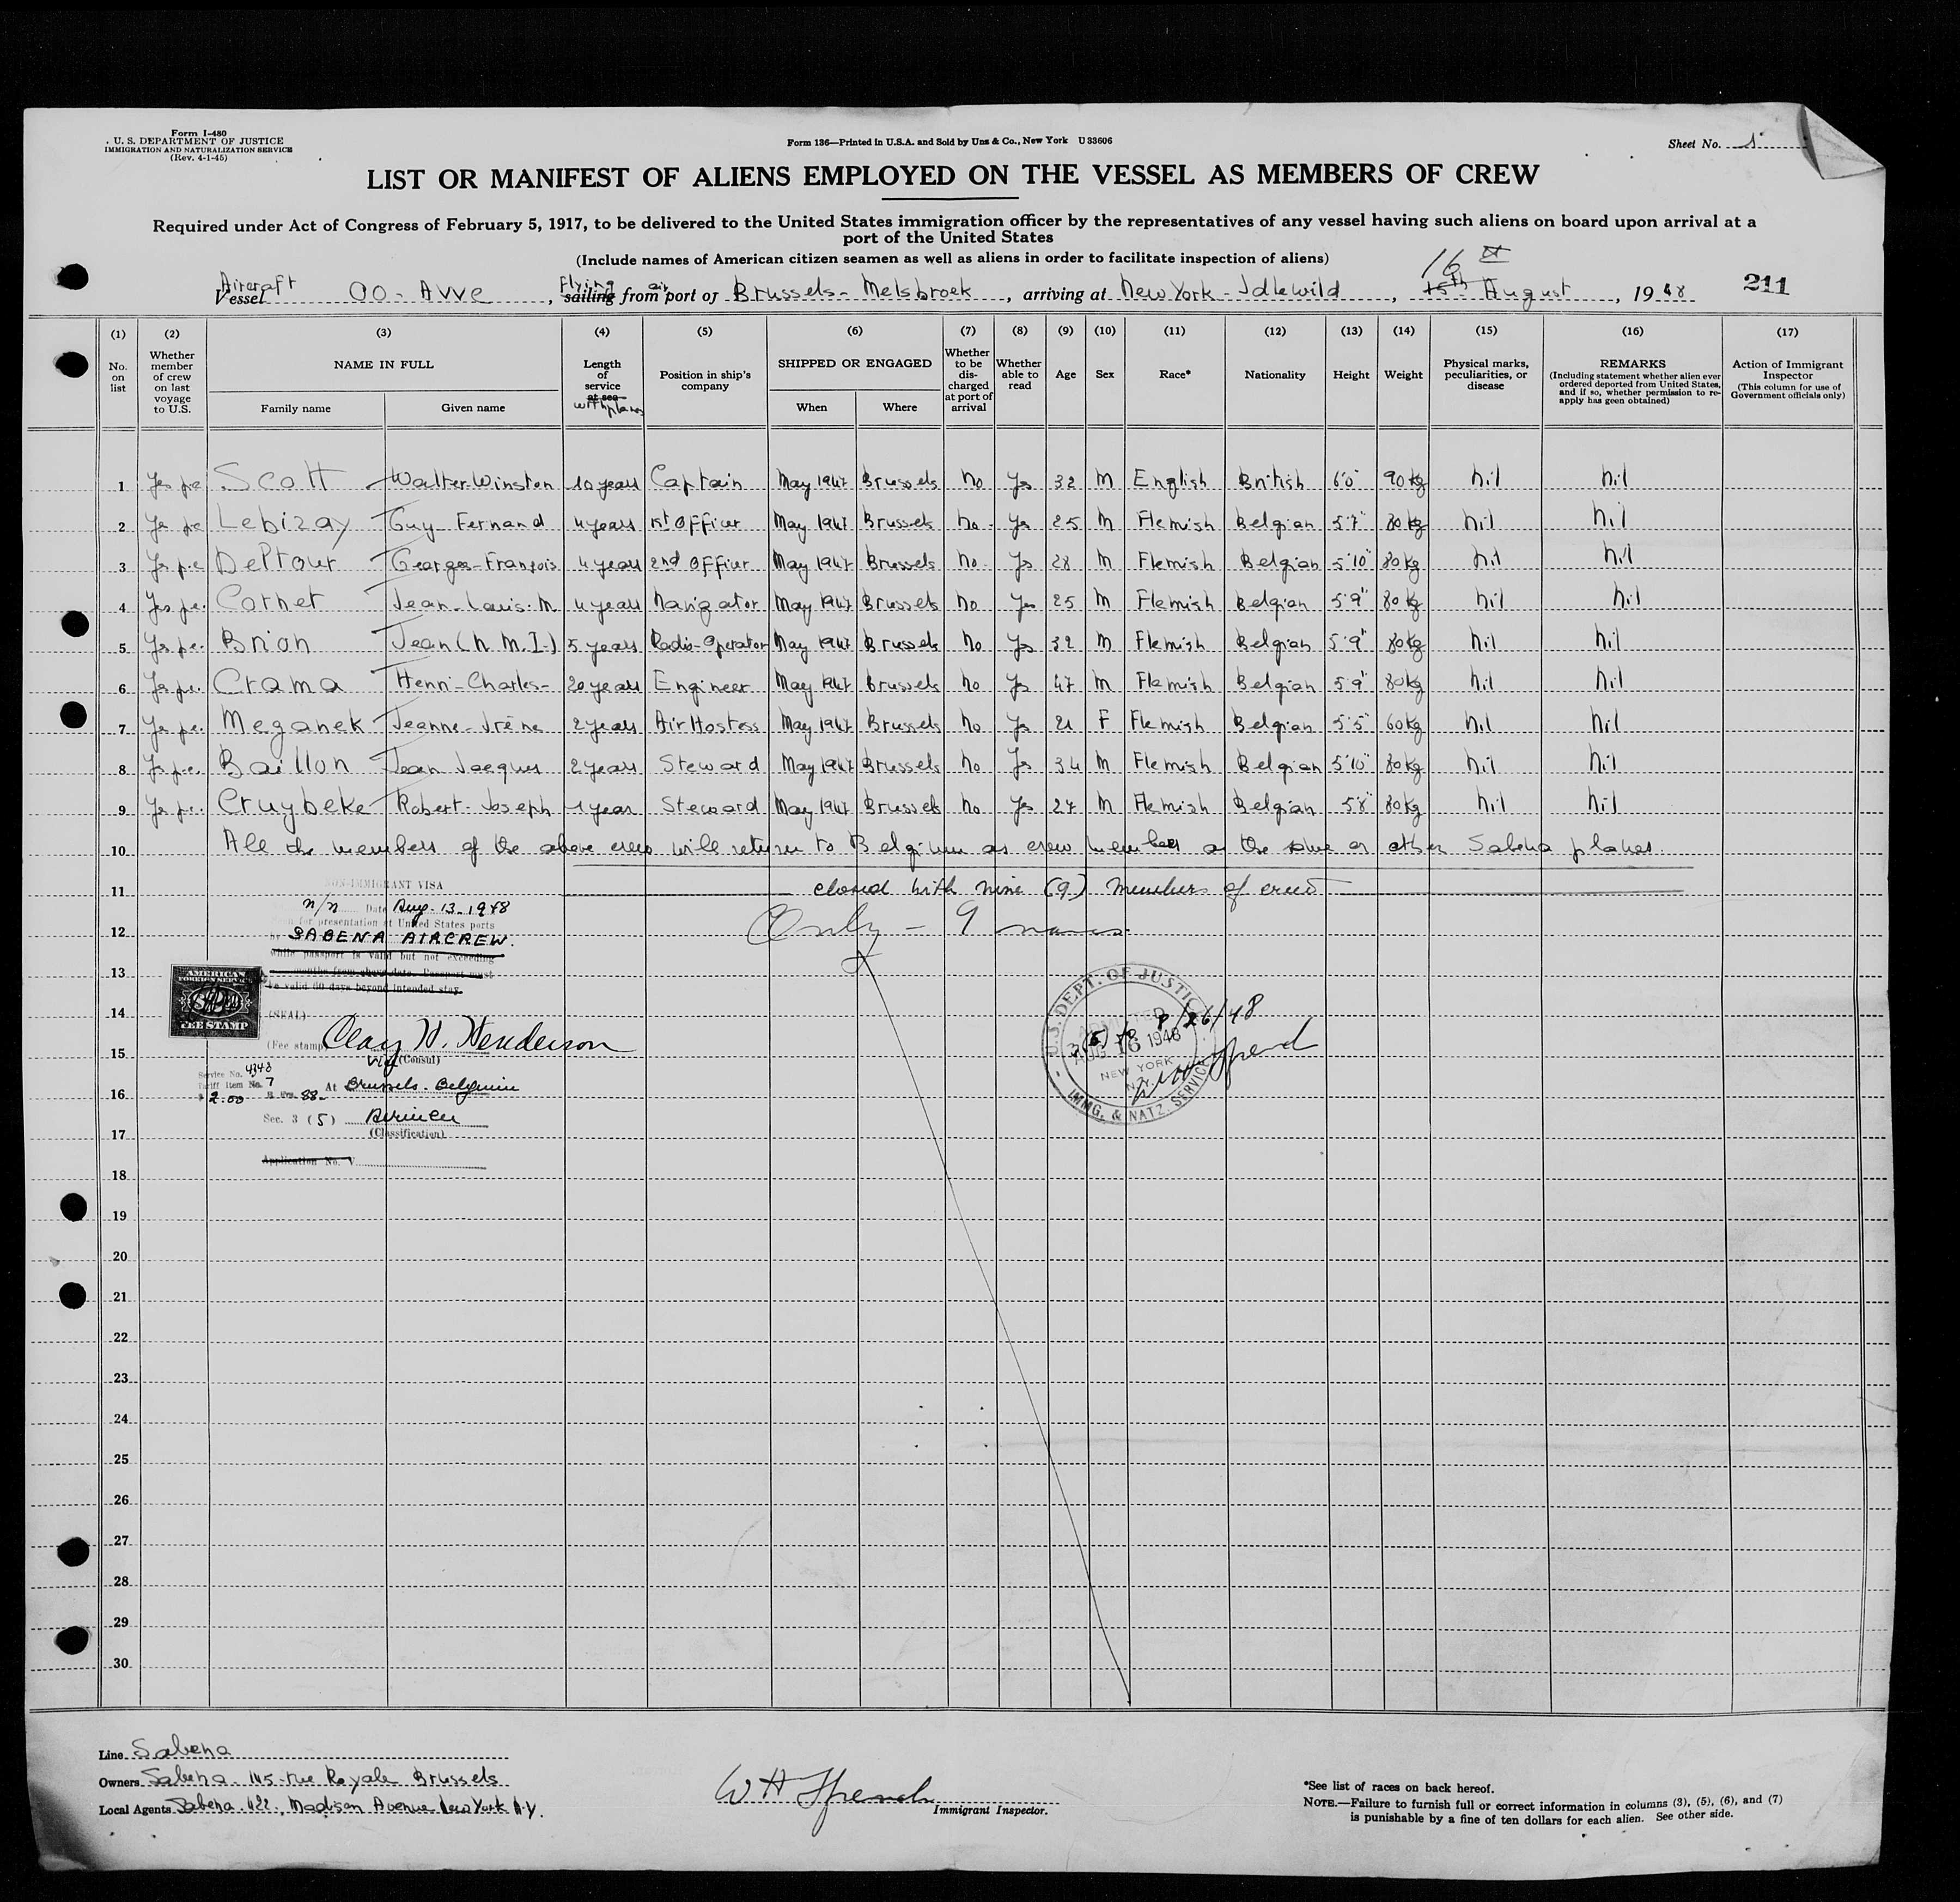 Form I-480
U. S. DEPARTMENT OF JUSTICE
IMMIGRATION AND NATURALIZATION SERVICE
(Rev. 4-1-45)
Form 136—Printed in U.S.A. and Sold by Unz & Co., New York U 33606
Sheet No. 1
LIST OR MANIFEST OF ALIENS EMPLOYED ON THE VESSEL AS MEMBERS OF CREW
Required under Act of Congress of February 5, 1917, to be delivered to the United States immigration officer by the representatives of any vessel having such aliens on board upon arrival at a
port of the United States
(Include names of American citizen seamen as well as aliens in order to facilitate inspection of aliens)
16th
Aircraft Flying air
Vessel OO-AWE, sailing from port of Brussels-Melsbroek, arriving at New York-Idlewild, 15th August, 1948 211
(1) (2) (3) (4) (5) (6) (7) (8) (9) (10) (11) (12) (13) (14) (15) (16) (17)
No. on list
Whether member of crew on last voyage to U.S.
NAME IN FULL
Family name
Given name
Length of service at sea
with planes
Position in ship's company
SHIPPED OR ENGAGED
When
Where
Whether to be discharged at port of arrival
Whether able to read
Age
Sex
Race*
Nationality
Height
Weight
Physical marks, peculiarities, or disease
REMARKS
(Including statement whether alien ever ordered deported from United States, and if so, whether permission to re-apply has geen obtained)
Action of Immigrant Inspector
(This column for use of Government officials only)
1 Yes Scott Walter Winston 10 years Captain May 1947 Brussels No Yes 32 M English British 6'0" 90 kg nil nil
2 Yes Lebizay Guy-Fernand 4 years 1st Officer May 1947 Brussels No Yes 25 M Flemish Belgian 5'7" 80 kg nil nil
3 Yes Deltour Georges-François 4 years 2nd Officer May 1947 Brussels No Yes 28 M Flemish Belgian 5'10" 80 kg nil nil
4 Yes Cornet Jean-Louis. M 4 years Navigator May 1947 Brussels No Yes 25 M Flemish Belgian 5'9" 80 kg nil nil
5 Yes Brion Jean (N.M.I.) 5 years Radio-Operator May 1947 Brussels No Yes 32 M Flemish Belgian 5'9" 80 kg nil nil
6 Yes Crama Henri-Charles- 20 years Engineer May 1947 Brussels No Yes 47 M Flemish Belgian 5'9" 80 kg nil nil
7 Yes Meganek Jeanne-Irène 2 years Air Hostess May 1947 Brussels No Yes 21 F Flemish Belgian 5'5" 60 kg nil nil
8 Yes Baillon Jean Jacques 2 years Steward May 1947 Brussels No Yes 34 M Flemish Belgian 5'10" 80 kg nil nil
9 Yes Cruybeke Robert-Joseph 1 year Steward May 1947 Brussels No Yes 27 M Flemish Belgian 5'8" 80 kg nil nil
10 All the members of the above crew will return to Belgium as crew members on the same or other Sabena planes.
11 closed with nine (9) members of crew
12 Only - 9 names
13
14
15
16
17
18
19
20
21
22
23
24
25
26
27
28
29
30
NON-IMMIGRANT VISA
n/n Date Aug. 13. 1948
for presentation at United States ports
by SABENA AIRCREW.
while passport is valid but not exceeding
months from above date. Passport must
be valid 60 days beyond intended stay.
AMERICAN
FOREIGN SERVICE
FEE STAMP
(SEAL)
(Fee stamp)
(Consul)
Service No. 4348
Tariff Item No. 7
$ 2.00 88- At Brussels. Belgium
Sec. 3 (5)
(Classification)
Application No. V
U.S. DEPT. OF JUSTICE
ADMITTED
AUG 16 1948
NEW YORK
N.Y.
IMMG. & NATZ. SERVICE
3(5) to 8/26/48
Line Sabena
Owners Sabena. 145-rue Royale Brussels
Local Agents Sabena. 422, Madison Avenue New York N.Y.
Immigrant Inspector.
*See list of races on back hereof.
NOTE.—Failure to furnish full or correct information in columns (3), (5), (6), and (7)
is punishable by a fine of ten dollars for each alien. See other side.